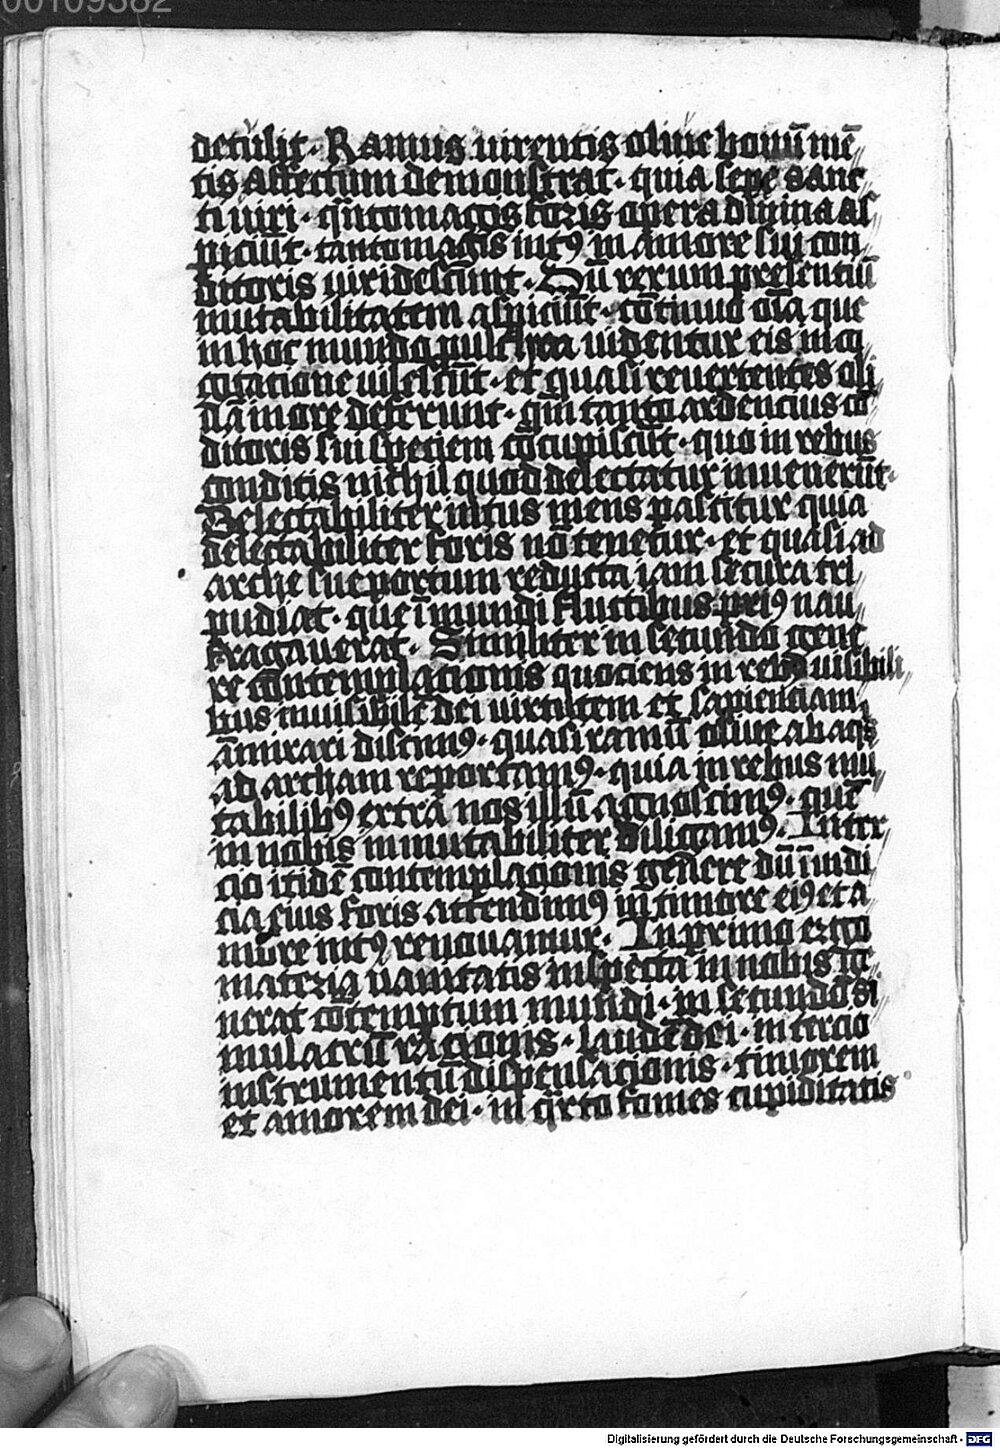 00109382
detulit · Ramus uirentis oliue bonū mē
tis affectum demonstrat · quia sepe sanc
ti uiri · qn̄tomagis foris opera diuina as
piciūt · tantomagis int9 in amore sui con
ditoris uiridescunt · Dū rerum presentiū
mutabilitatem aspiciūt · cōtinuo oīa que
in hoc mundo pulchra uidentur eis in co
gitacione uilescūt · et quasi reuertentes oli
uā in ore deferunt · qui tanto ardencius cō
ditoris sui speciem cōcupiscūt · quo in rebus
conditis nichil quod delectatur inuenerūt ·
Delectabiliter intus mens pascitur quia
delectabiliter foris nō tenetur · et quasi ad
arche sue portum reducta iam secura tri
pudiat · que ī mundi fluctibus pri9 nau
fragauerat · Similiter in secundo gene
re contemplacionis quociens in reb9 uisibili
bus inuisibilē dei uirtutem et sapienciam
āmirari discim9 · quasi ramū oliue ab aqs
ad archam reportam9 · quia in rebus mu
tabilib9 extra nos illū agnoscim9 · quē
in nobis inmutabiliter diligam9 · In ter
cio itidē contemplacionis genere dū iudi
cia eius foris attendim9 in timore ei9 et a
more int9 renouamur · In primo ergo
materia uanitatis inspecta in nobis gē
nerat cōtemptum mundi · in secundo si
mulacrū racionis · laudē dei · in tercio
instrumentū dispensacionis · timorem
et amorem dei · in qrto fomes cupiditatis
Digitalisierung gefördert durch die Deutsche Forschungsgemeinschaft - DFG